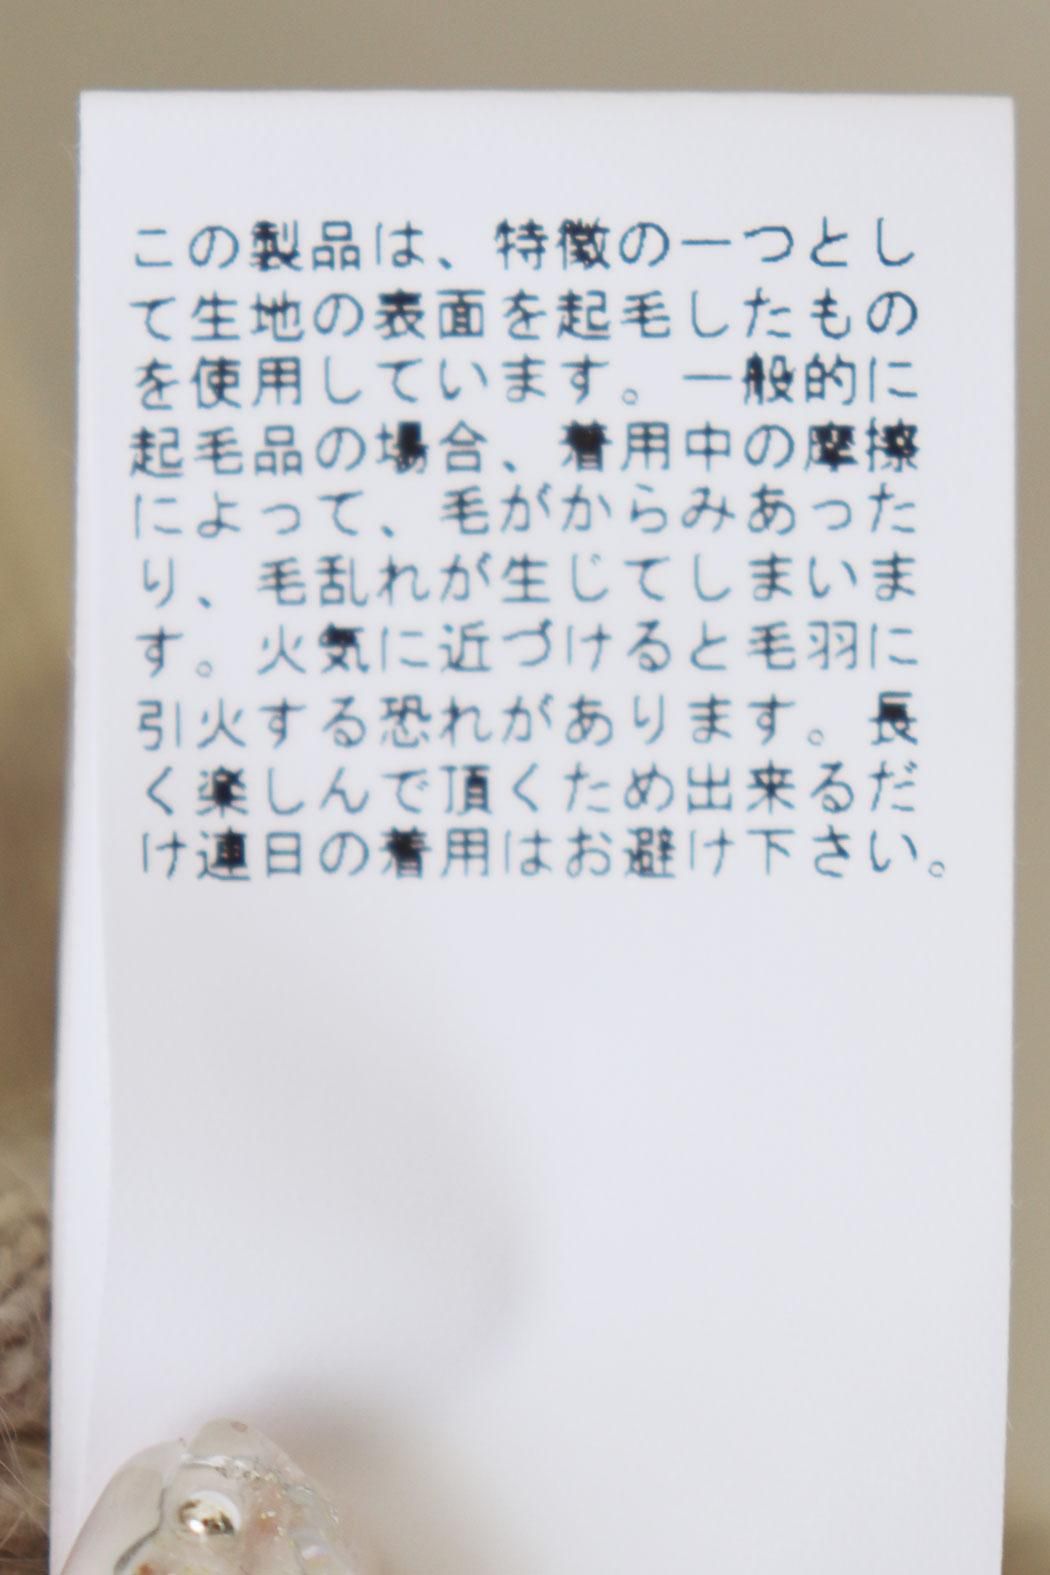 この製品は、特徴の一つとし
て生地の表面を起毛したもの
を使用しています。一般的に
起毛品の場合、着用中の摩擦
によって、毛がからみあった
り、毛乱れが生じてしまいま
す。火気に近づけると毛羽に
引火する恐れがあります。長
く楽しんで頂くため出来るだ
け連日の着用はお避け下さい。